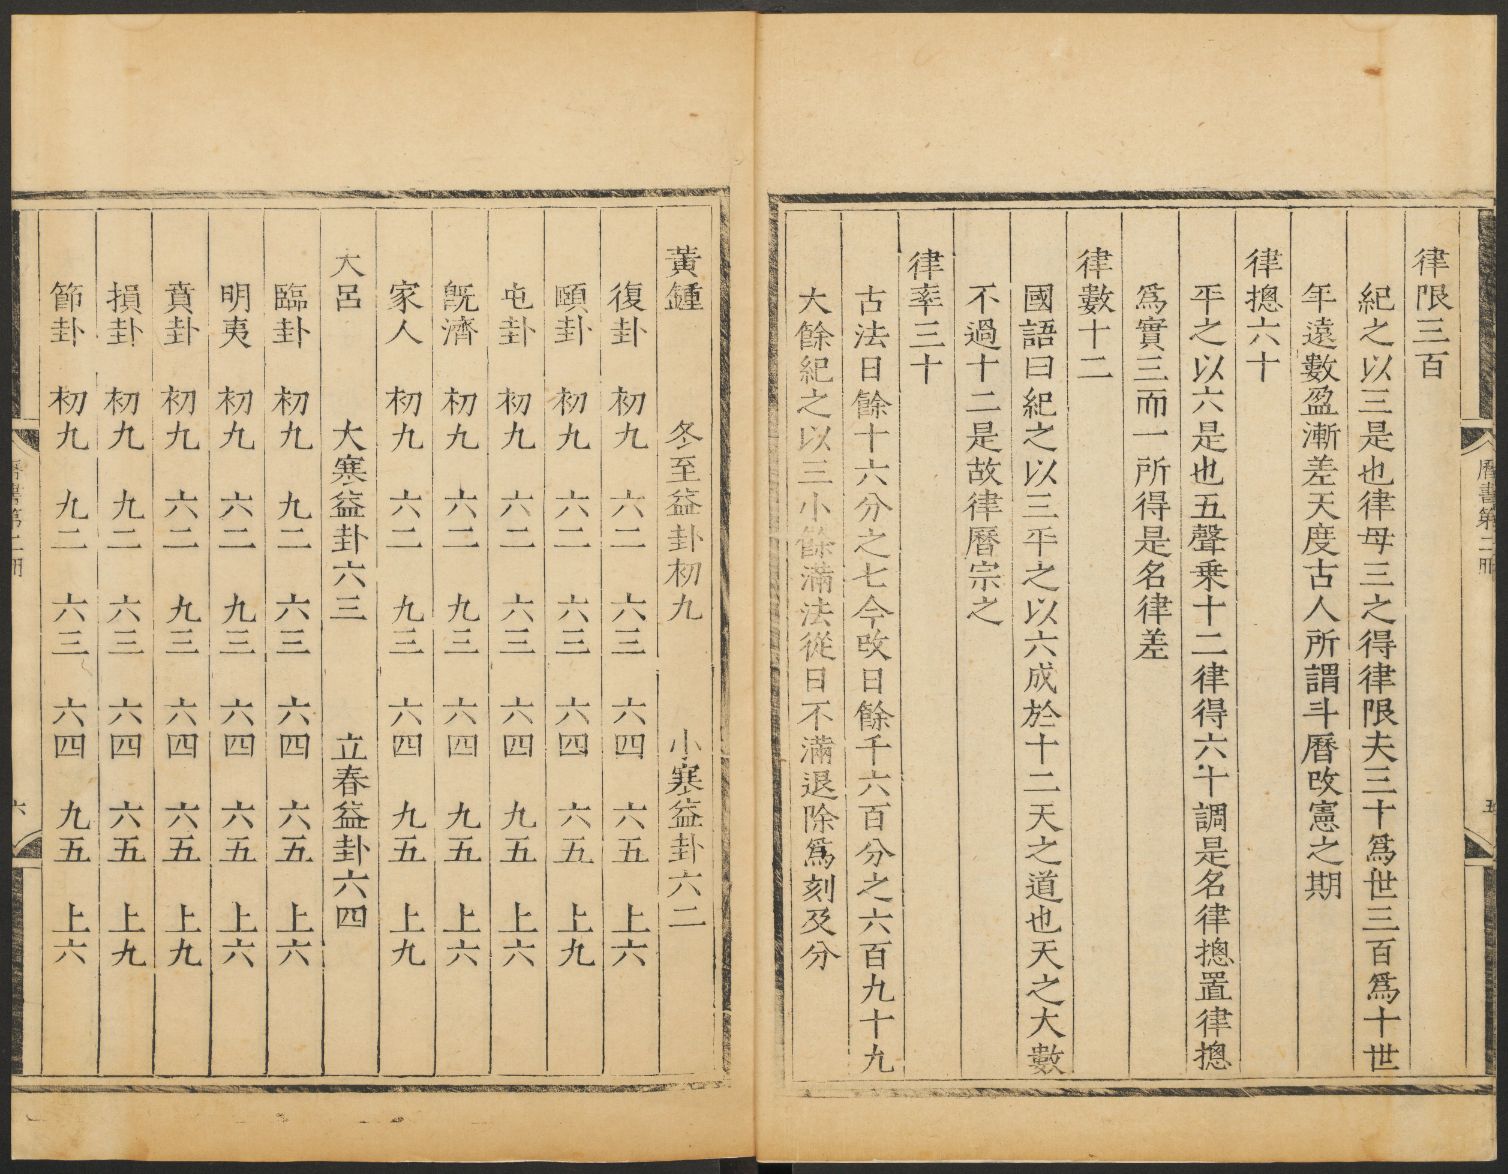 曆書第二冊
五
律限三百
紀之以三是也律母三之得律限夫三十爲世三百爲十世
年遠數盈漸差天度古人所謂斗曆改憲之期
律摠六十
平之以六是也五聲乗十二律得六十調是名律摠置律摠
爲實三而一所得是名律差
律數十二
國語曰紀之以三平之以六成於十二天之道也天之大數
不過十二是故律曆宗之
律率三十
古法日餘十六分之七今改日餘千六百分之六百九十九
大餘紀之以三小餘滿法從日不滿退除爲刻及分
黃鍾 冬至益卦初九 小寒益卦六二
復卦 初九 六二 六三 六四 六五 上六
頤卦 初九 六二 六三 六四 六五 上九
屯卦 初九 六二 六三 六四 九五 上六
旣濟 初九 六二 九三 六四 九五 上六
家人 初九 六二 九三 六四 九五 上九
大呂 大寒益卦六三 立春益卦六四
臨卦 初九 九二 六三 六四 六五 上六
明夷 初九 六二 九三 六四 六五 上六
賁卦 初九 六二 九三 六四 六五 上九
損卦 初九 九二 六三 六四 六五 上九
節卦 初九 九二 六三 六四 九五 上六
曆書第二冊
六